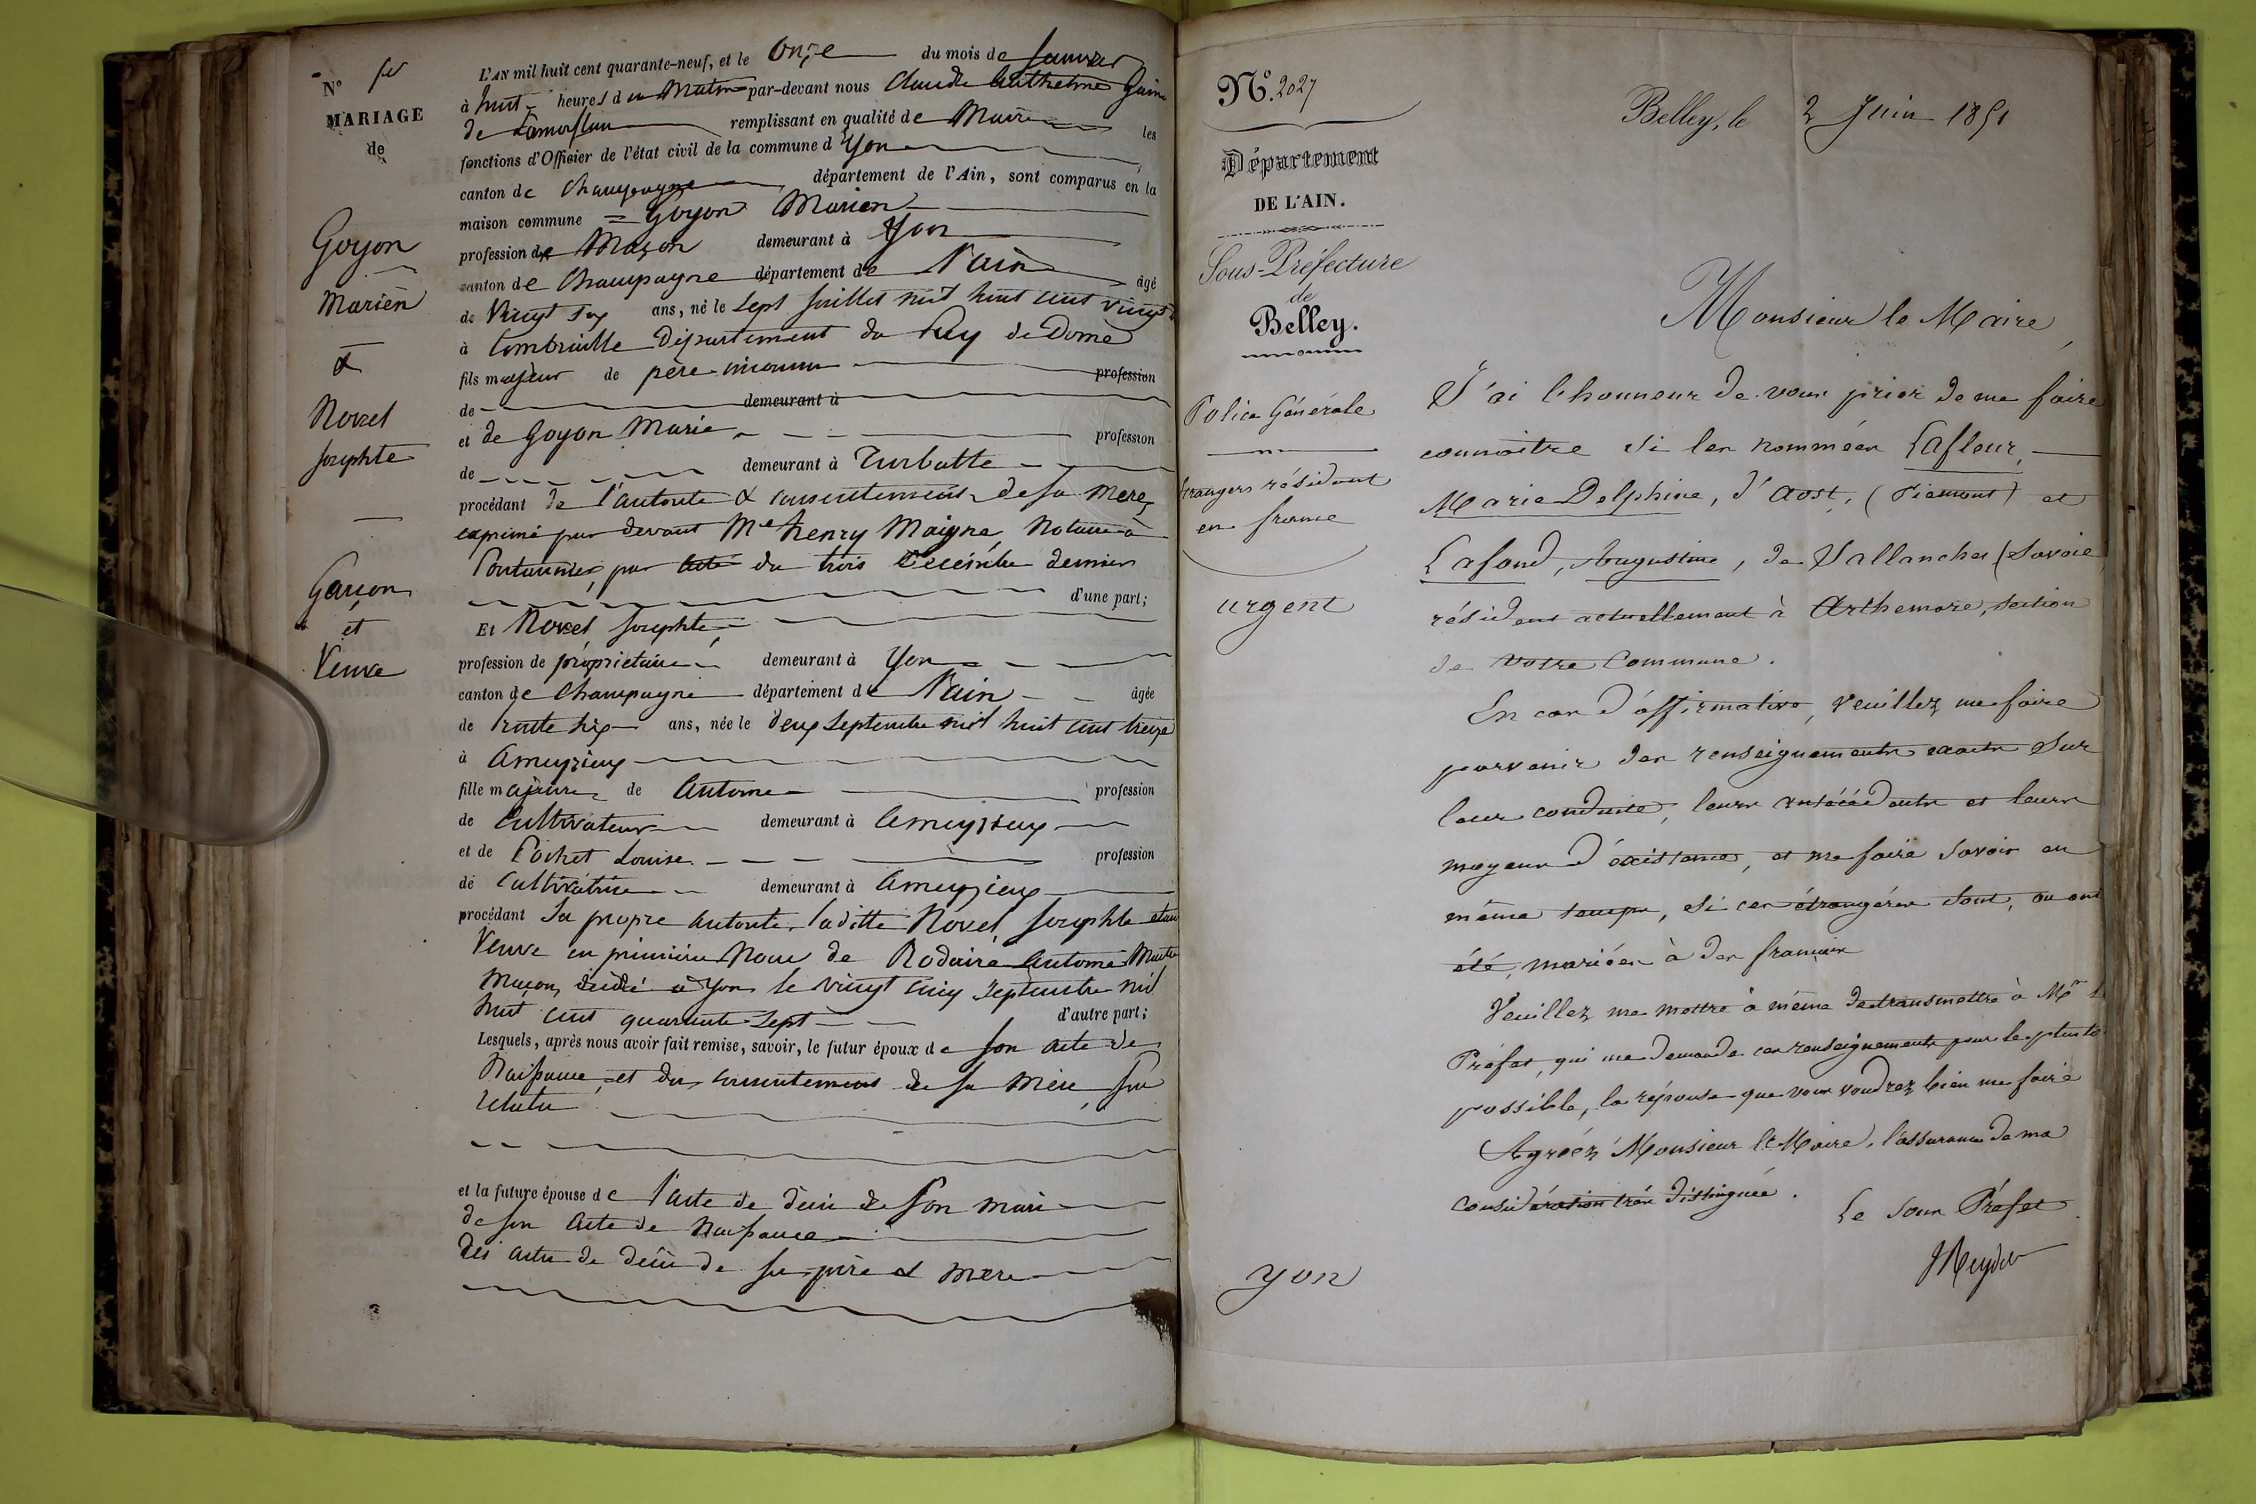 N° 1er
MARIAGE
de
Goyon
Marien
&
Novel
Josephte
Garçon
et
Veuve
L'AN mil huit cent quarante-neuf, et le onze du mois de Janvier
à huit heures du Matin par-devant nous Claude Anthelme
de remplissant en qualité de Maire les
fonctions d'Officier de l'état civil de la commune d'Yon
canton de Champagne département de l'Ain, sont comparus en la
maison commune = Goyon Marien
profession de Maçon demeurant à Yon
canton de Champagne département de l'ain âgé
de Vingt six ans, né le sept Juillet mil huit cent vingt
à Combraille Département du Puy de Dome
fils majeur de père inconnu profession
de demeurant à
et de Goyon Marie profession
de demeurant à
procédant de l'autorité & consentement de sa mère,
exprimé par devant Me henry Maigne, Notaire à
par acte du trois Décembre dernier
d'une part;
Et Novel Josephte
profession de propriétaire demeurant à Yon
canton de Champagne département de l'ain âgée
de trente six ans, née le deux Septembre mil huit cent treize
à Ameyzieux
fille majeure de Antoine profession
de Cultivateur demeurant à Ameyzieux
et de Pochet Louise profession
de Cultivatrice demeurant à Ameyzieux
procédant sa propre autorité, laditte Novel Josephte étant
Veuve en première Noce de Rodaire Antoine Maitre
Maçon, décédé à Yon le vingt cinq Septembre mil
huit cent quarante sept d'autre part;
Lesquels, après nous avoir fait remise, savoir, le futur époux de son acte de
Naissance, et du consentement de sa Mère, sus
relaté
et la future épouse de l'acte de décès de son mari
de son acte de Naissance
des actes de décès de ses père & mère
N°. 2027
Département
DE L'AIN.
Sous-Préfecture
de
Belley.
Police Générale
Etrangers résidant
en france
urgent
Belley, le 2 Juin 1851
Monsieur le Maire,
J'ai l'honneur de vous prier de me faire
connaître si les nommées Lafleur,
Marie Delphine, d'Aost, (Piemont) et
Lafond, Augustine, de Sallanches (Savoie
résident actuellement à Arthemare, section
de votre Commune.
En cas d'affirmative, veuillez me faire
parvenir des renseignements exacts sur
leur conduite, leurs antécédents et leurs
moyens d'existence, et me faire savoir en
même temps, si ces étrangères sont, ou ont
été, mariées à des français
Veuillez me mettre à même de transmettre à Mr le
Préfet, qui me demande ces renseignements pour le plustot
possible, la réponse que vous voudrez bien me faire
Agréez Monsieur le Maire, l'assurance de ma
considération très distinguée.
Le Sous Préfet
Yon